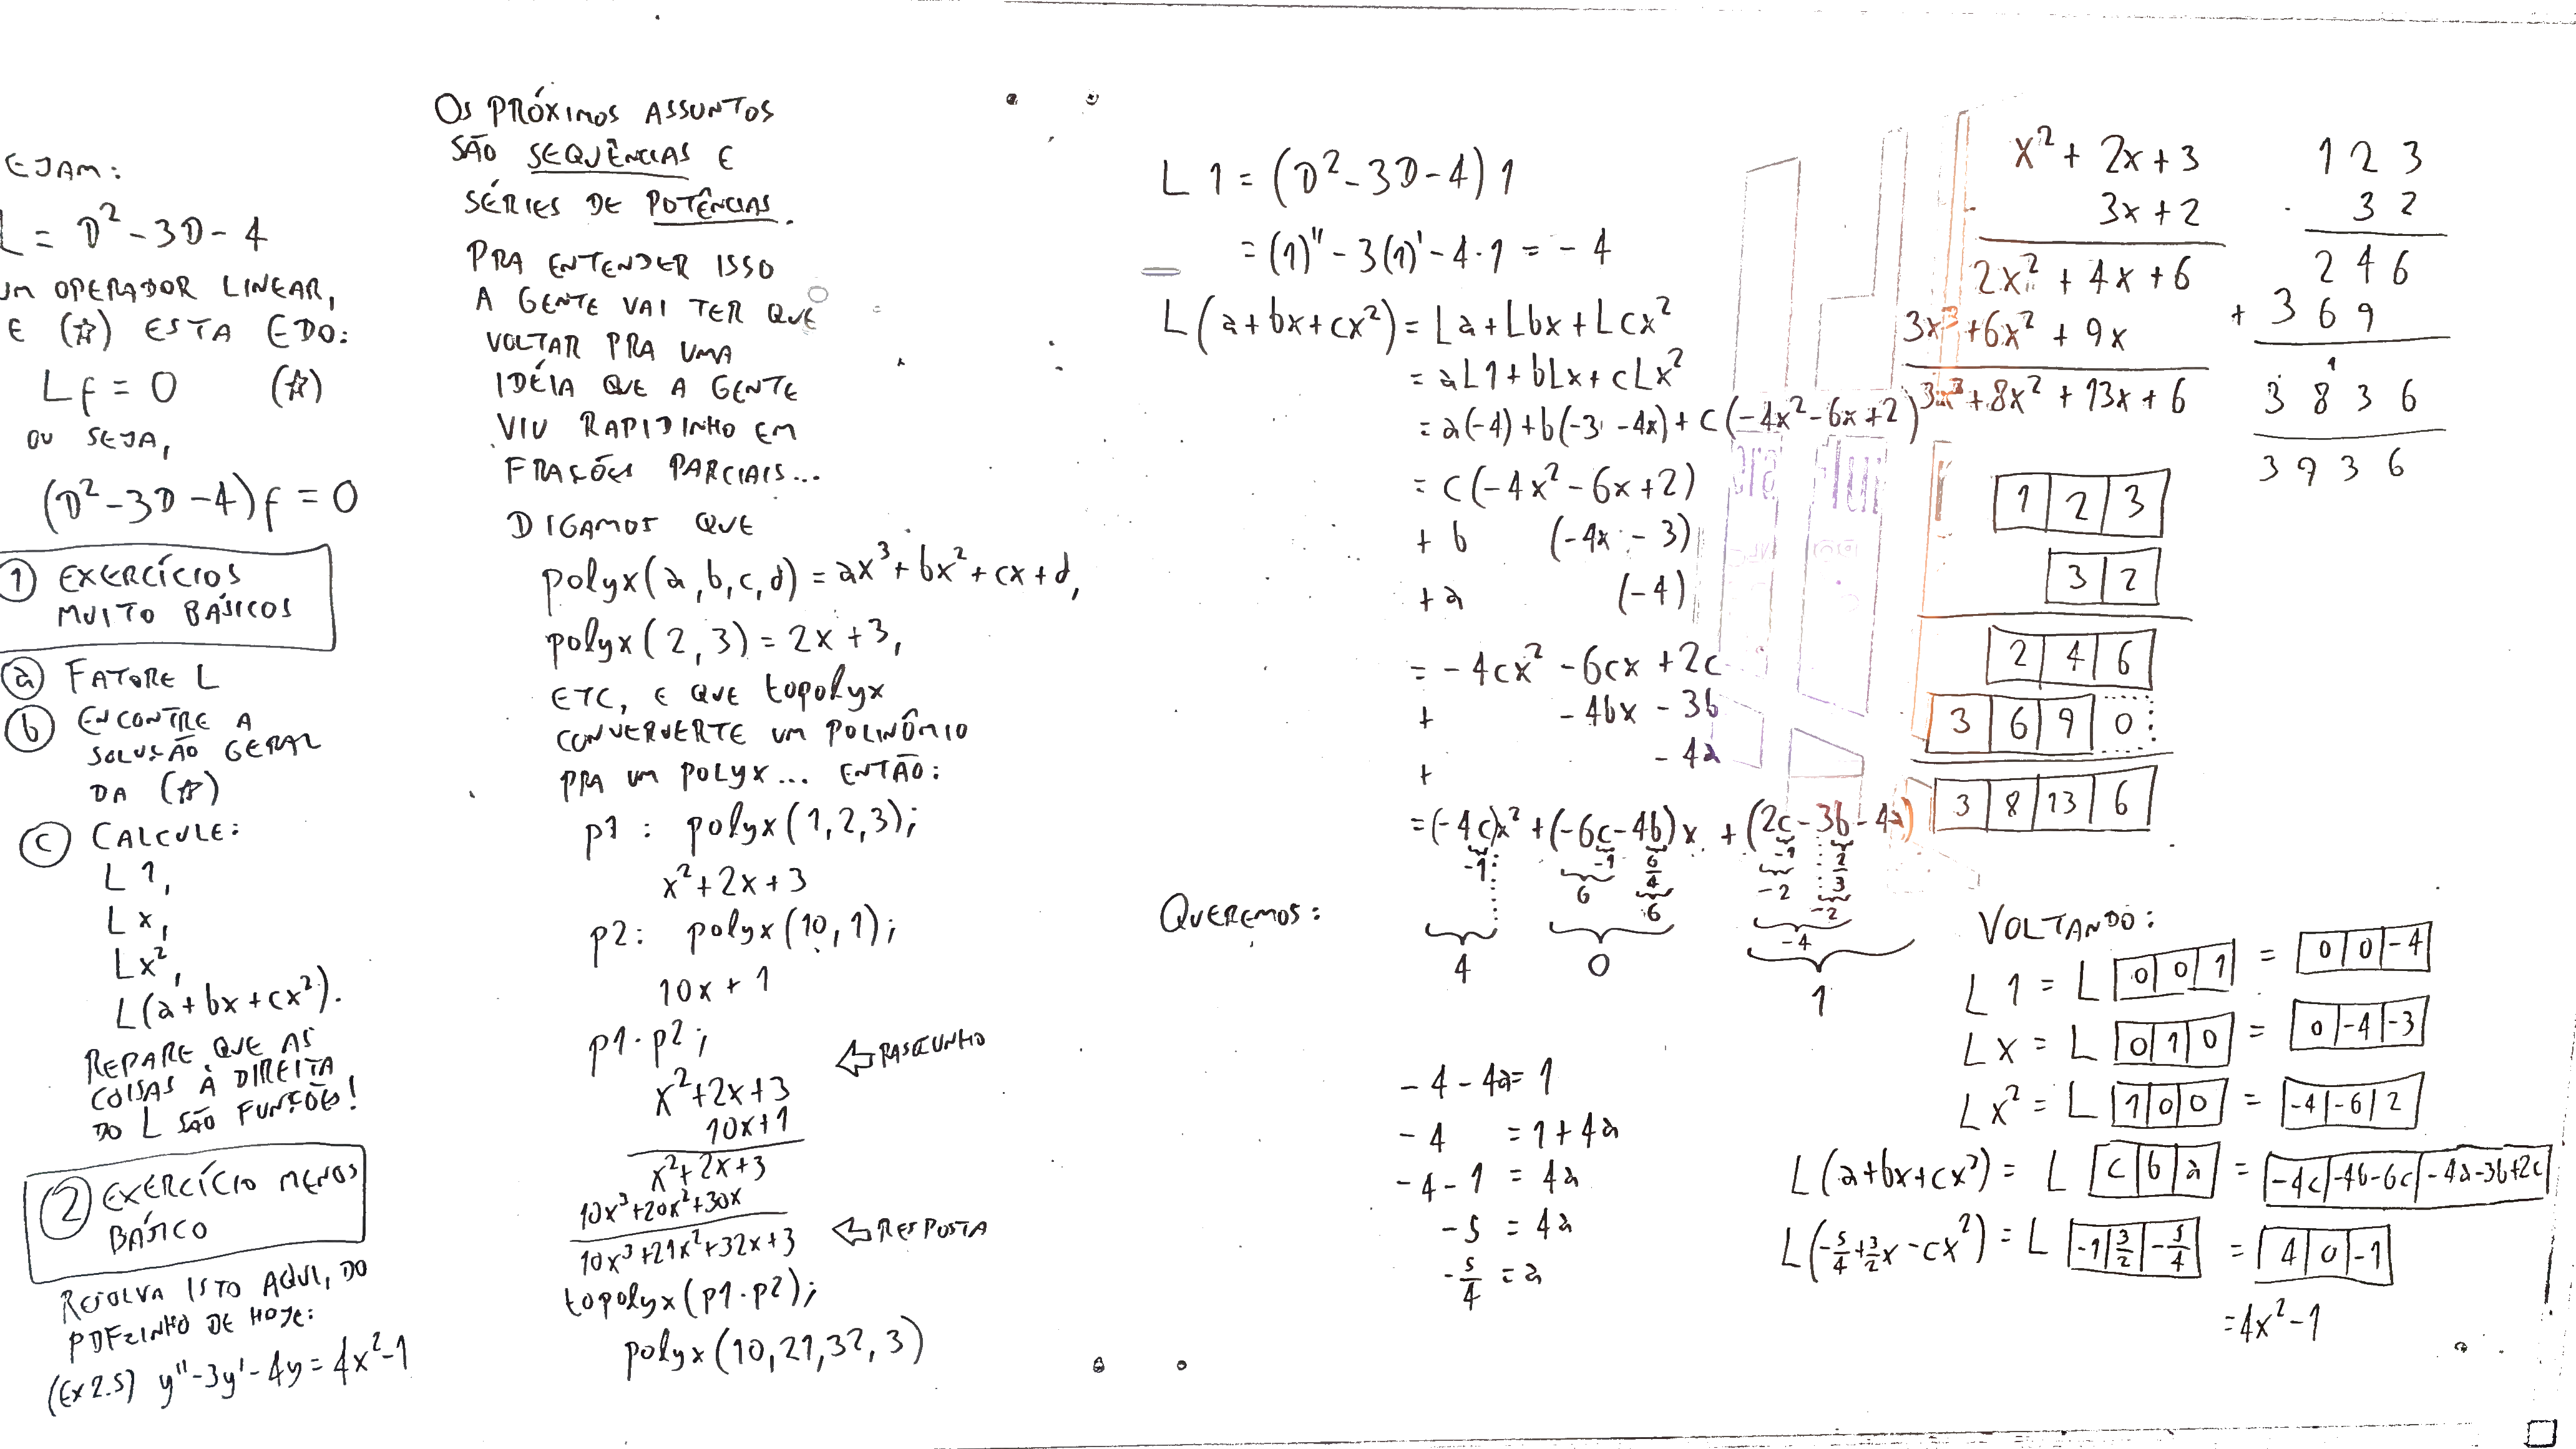 EJAM:
L = D² - 3D - 4
UM OPERADOR LINEAR,
E (☆) ESTA EDO:
Lf = 0 (☆)
OU SEJA,
(D² - 3D - 4)f = 0
① EXERCÍCIOS
MUITO BÁSICOS
ⓐ FATORE L
ⓑ ENCONTRE A
SOLUÇÃO GERAL
DA (☆)
ⓒ CALCULE:
L 1,
L x,
L x²,
L(a + bx + cx²).
REPARE QUE AS
COISAS À DIREITA
DO L SÃO FUNÇÕES!
② EXERCÍCIO MENOS
BÁSICO
RESOLVA ISTO AQUI, DO
PDFZINHO DE HOJE:
(Ex 2.5) y'' - 3y' - 4y = 4x² - 1
OS PRÓXIMOS ASSUNTOS
SÃO SEQUÊNCIAS E
SÉRIES DE POTÊNCIAS.
PRA ENTENDER ISSO
A GENTE VAI TER QUE
VOLTAR PRA UMA
IDÉIA QUE A GENTE
VIU RAPIDINHO EM
FRAÇÕES PARCIAIS...
DIGAMOS QUE
polyx(a, b, c, d) = ax³ + bx² + cx + d,
polyx(2, 3) = 2x + 3,
ETC, E QUE topolyx
CONVERVERTE UM POLINÔMIO
PRA UM POLYX... ENTÃO:
p1 : polyx(1, 2, 3);
x² + 2x + 3
p2 : polyx(10, 1);
10x + 1
p1 · p2;
x² + 2x + 3 ⇦ RASCUNHO
10x + 1
x² + 2x + 3
10x³ + 20x² + 30x
10x³ + 21x² + 32x + 3 ⇦ RESPOSTA
topolyx(p1 · p2);
polyx(10, 21, 32, 3)
L 1 = (D² - 3D - 4) 1
= (1)'' - 3(1)' - 4·1 = -4
L(a + bx + cx²) = La + Lbx + Lcx²
= aL1 + bLx + cLx²
= a(-4) + b(-3 - 4x) + c(-4x² - 6x + 2)
= c(-4x² - 6x + 2)
+ b (-4x - 3)
+ a (-4)
= -4cx² - 6cx + 2c
+ - 4bx - 3b
+ - 4a
= (-4c)x² + (-6c - 4b)x + (2c - 3b - 4a)
-1 -1 6/4 -1 2/3
6 -6 -2 -2
-4
QUEREMOS: 4 0 1
-4 - 4a = 1
-4 = 1 + 4a
-4 - 1 = 4a
-5 = 4a
-5/4 = a
x² + 2x + 3
· 3x + 2
2x² + 4x + 6
3x³ + 6x² + 9x
3x³ + 8x² + 13x + 6
1 2 3
· 3 2
2 4 6
+ 3 6 9
1
3 8 3 6
3 9 3 6
1 2 3
3 2
2 4 6
3 6 9 0
3 8 13 6
VOLTANDO:
L 1 = L 0 0 1 = 0 0 -4
L x = L 0 1 0 = 0 -4 -3
L x² = L 1 0 0 = -4 -6 2
L(a + bx + cx²) = L c b a = -4c -4b-6c -4a-3b+2c
L(-5/4 + 3/2 x - cx²) = L -1 3/2 -5/4 = 4 0 -1
= 4x² - 1